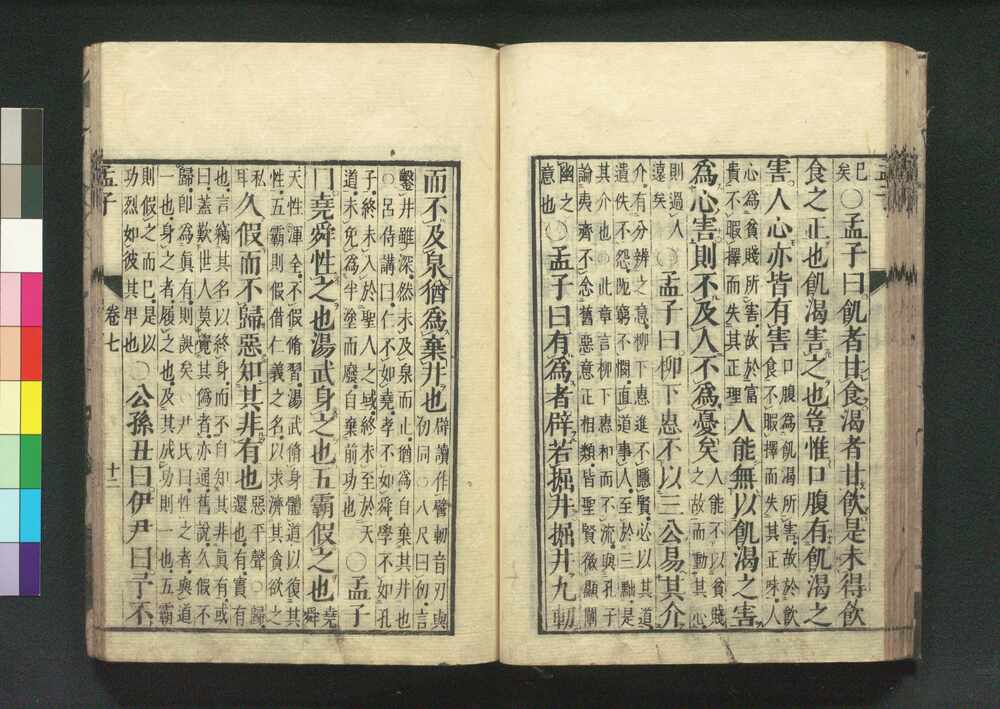 已
矣
○孟子曰飢者甘食渴者甘飲是未得飲
食之正也飢渴害之也豈惟口腹有飢渴之
害人心亦皆有害
口腹為飢渴所害故於飲
食不暇擇而失其正味人
心為貧賤所害故於富
貴不暇擇而失其正理
人能無以飢渴之害
為心害則不及人不為憂矣
人能不以貧賤
之故而動其心
則過人
遠矣
○孟子曰柳下惠不以三公易其介
介有分辨之意柳下惠進不隱賢必以其道
遺佚不怨阨窮不憫直道事人至於三黜是
其介也○此章言柳下惠和而不流與孔子
論夷齊不念舊惡意正相類皆聖賢微顯闡
幽之
意也
○孟子曰有為者辟若掘井掘井九軔
而不及泉猶為棄井也
辟讀作譬軔音刃與
仞同○八尺曰仞言
鑿井雖深然未及泉而止猶為自棄其井也
○呂侍講曰仁不如堯孝不如舜學不如孔
子終未入於聖人之域終未至於天
道未免為半塗而廢自棄前功也
○孟子
曰堯舜性之也湯武身之也五霸假之也
堯
舜
天性渾全不假脩習湯武脩身體道以復其
性五霸則假借仁義之名以求濟其貪欲之
私
耳
久假而不歸惡知其非有也
惡平聲○歸
還也有實有
也言竊其名以終身而不自知其非真有或
曰蓋歎世人莫覺其偽者亦通舊說久假不
歸即為真有則誤矣○尹氏曰性之者與道
一也身之者履之也及其成功則一也五霸
則假之而已是以
功烈如彼其卑也
○公孫丑曰伊尹曰予不
孟子
卷七
十二